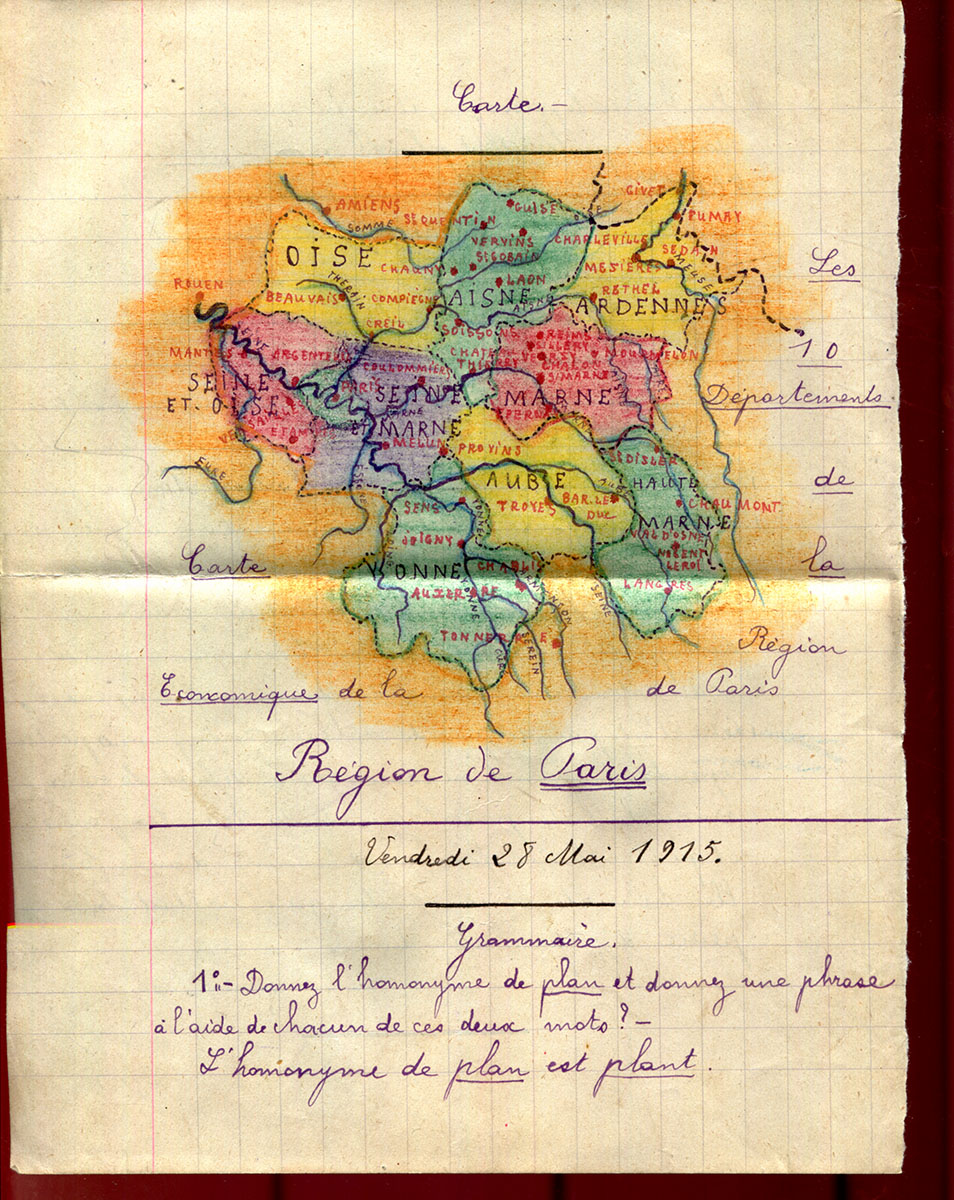 Carte.-
GIVET
AMIENS
FUMAY
SOMME
St QUENTIN
GUISE
VERVINS
CHARLEVILLE
SEDAN
OISE
St GOBAIN
MEZIÈRES
MEUSE
CHAUNY
LAON
RETHEL
ROUEN
THERAIN
BEAUVAIS
COMPIÈGNE
AISNE
AISNE
ARDENNES
CREIL
SOISSONS
REIMS
SILLERY
MANTES
ARGENTEUIL
CHATEAU
THIERRY
VERZY
MOURMELON
COULOMMIERS
CHALON
S/MARNE
SEINE
ET.OISE
PARIS
SEINE
ET
MARNE
MARNE
ETAMPES
MELUN
EPERNAY
PROVINS
EURE
St DISIER
AUBE
HAUTE
MARNE
SENS
TROYES
BAR.LE
DUC
CHAUMONT
JOIGNY
VAL D'OSNE
NOGENT
LEROI
YONNE
CHABLIS
LANGRES
AUXERRE
YONNE
SEINE
TONNERRE
SEREIN
Les
10
Départements
de
la
Région
de Paris
Carte
Economique de la
Région de Paris
Vendredi 28 Mai 1915.
Grammaire.
1°:- Donnez l'homonyme de plan et donnez une phrase
à l'aide de chacun de ces deux mots?-
L'homonyme de plan est plant.